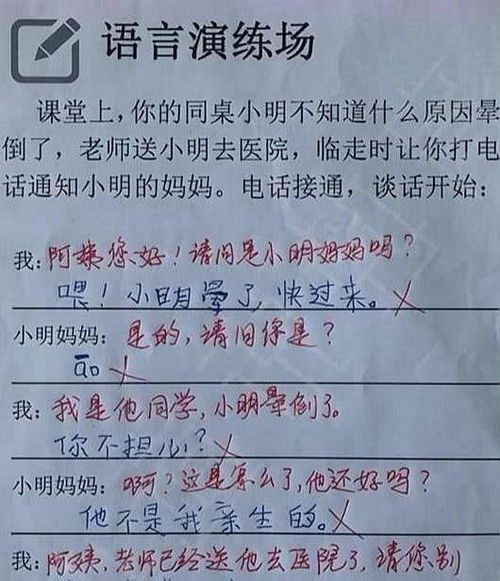 语言演练场
课堂上，你的同桌小明不知道什么原因晕
倒了，老师送小明去医院，临走时让你打电
话通知小明的妈妈。电话接通，谈话开始：
我：阿姨您好！请问是小明妈妈吗？
喂！小明晕了，快过来。
小明妈妈：是的，请问你是？
āo
我：我是他同学，小明晕倒了。
你不担心？
小明妈妈：啊？这是怎么了，他还好吗？
他不是我亲生的。
我：阿姨，老师已经送他去医院了，请您别